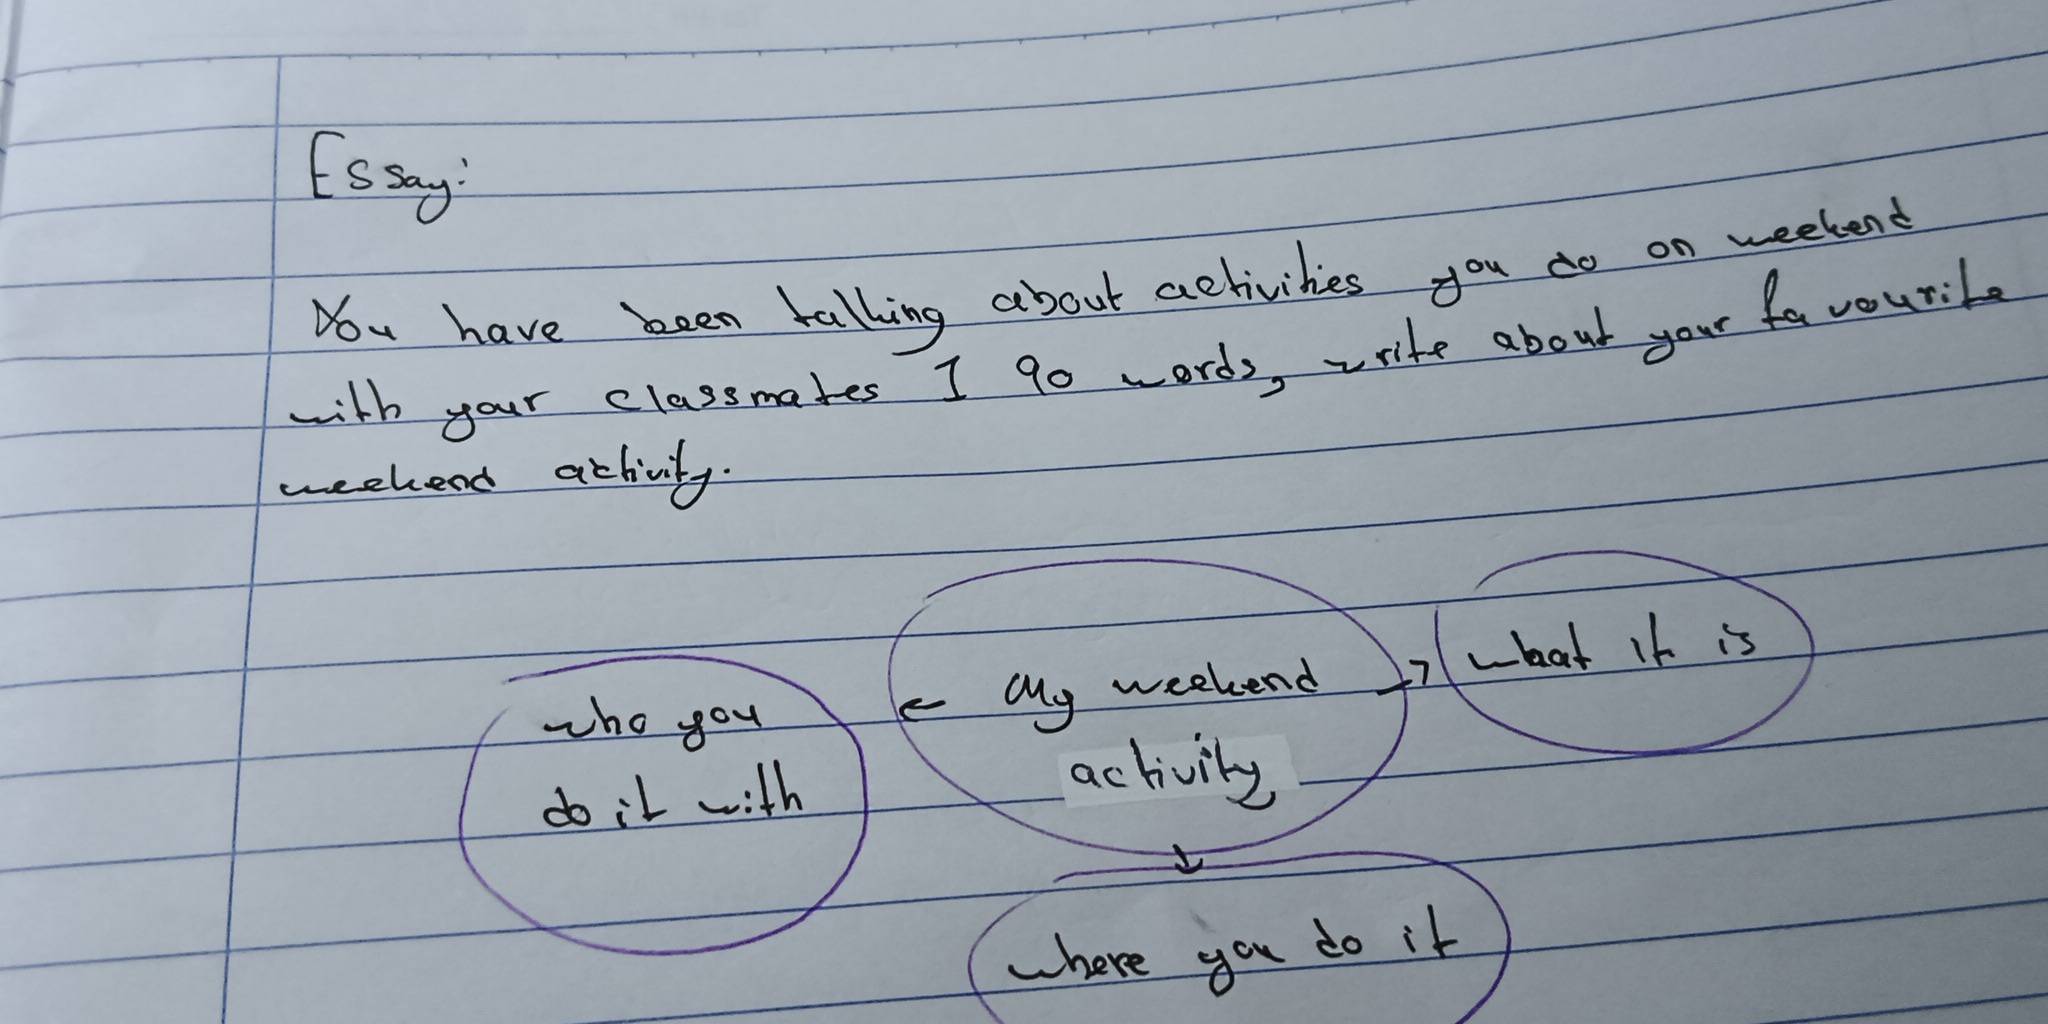 Essay:
You have been talking about activities you do on weekend
with your classmates I 90 words, write about your favourite
weekend activity.
who you
do it with
← My weekend →
activity
↓
what it is
where you do it